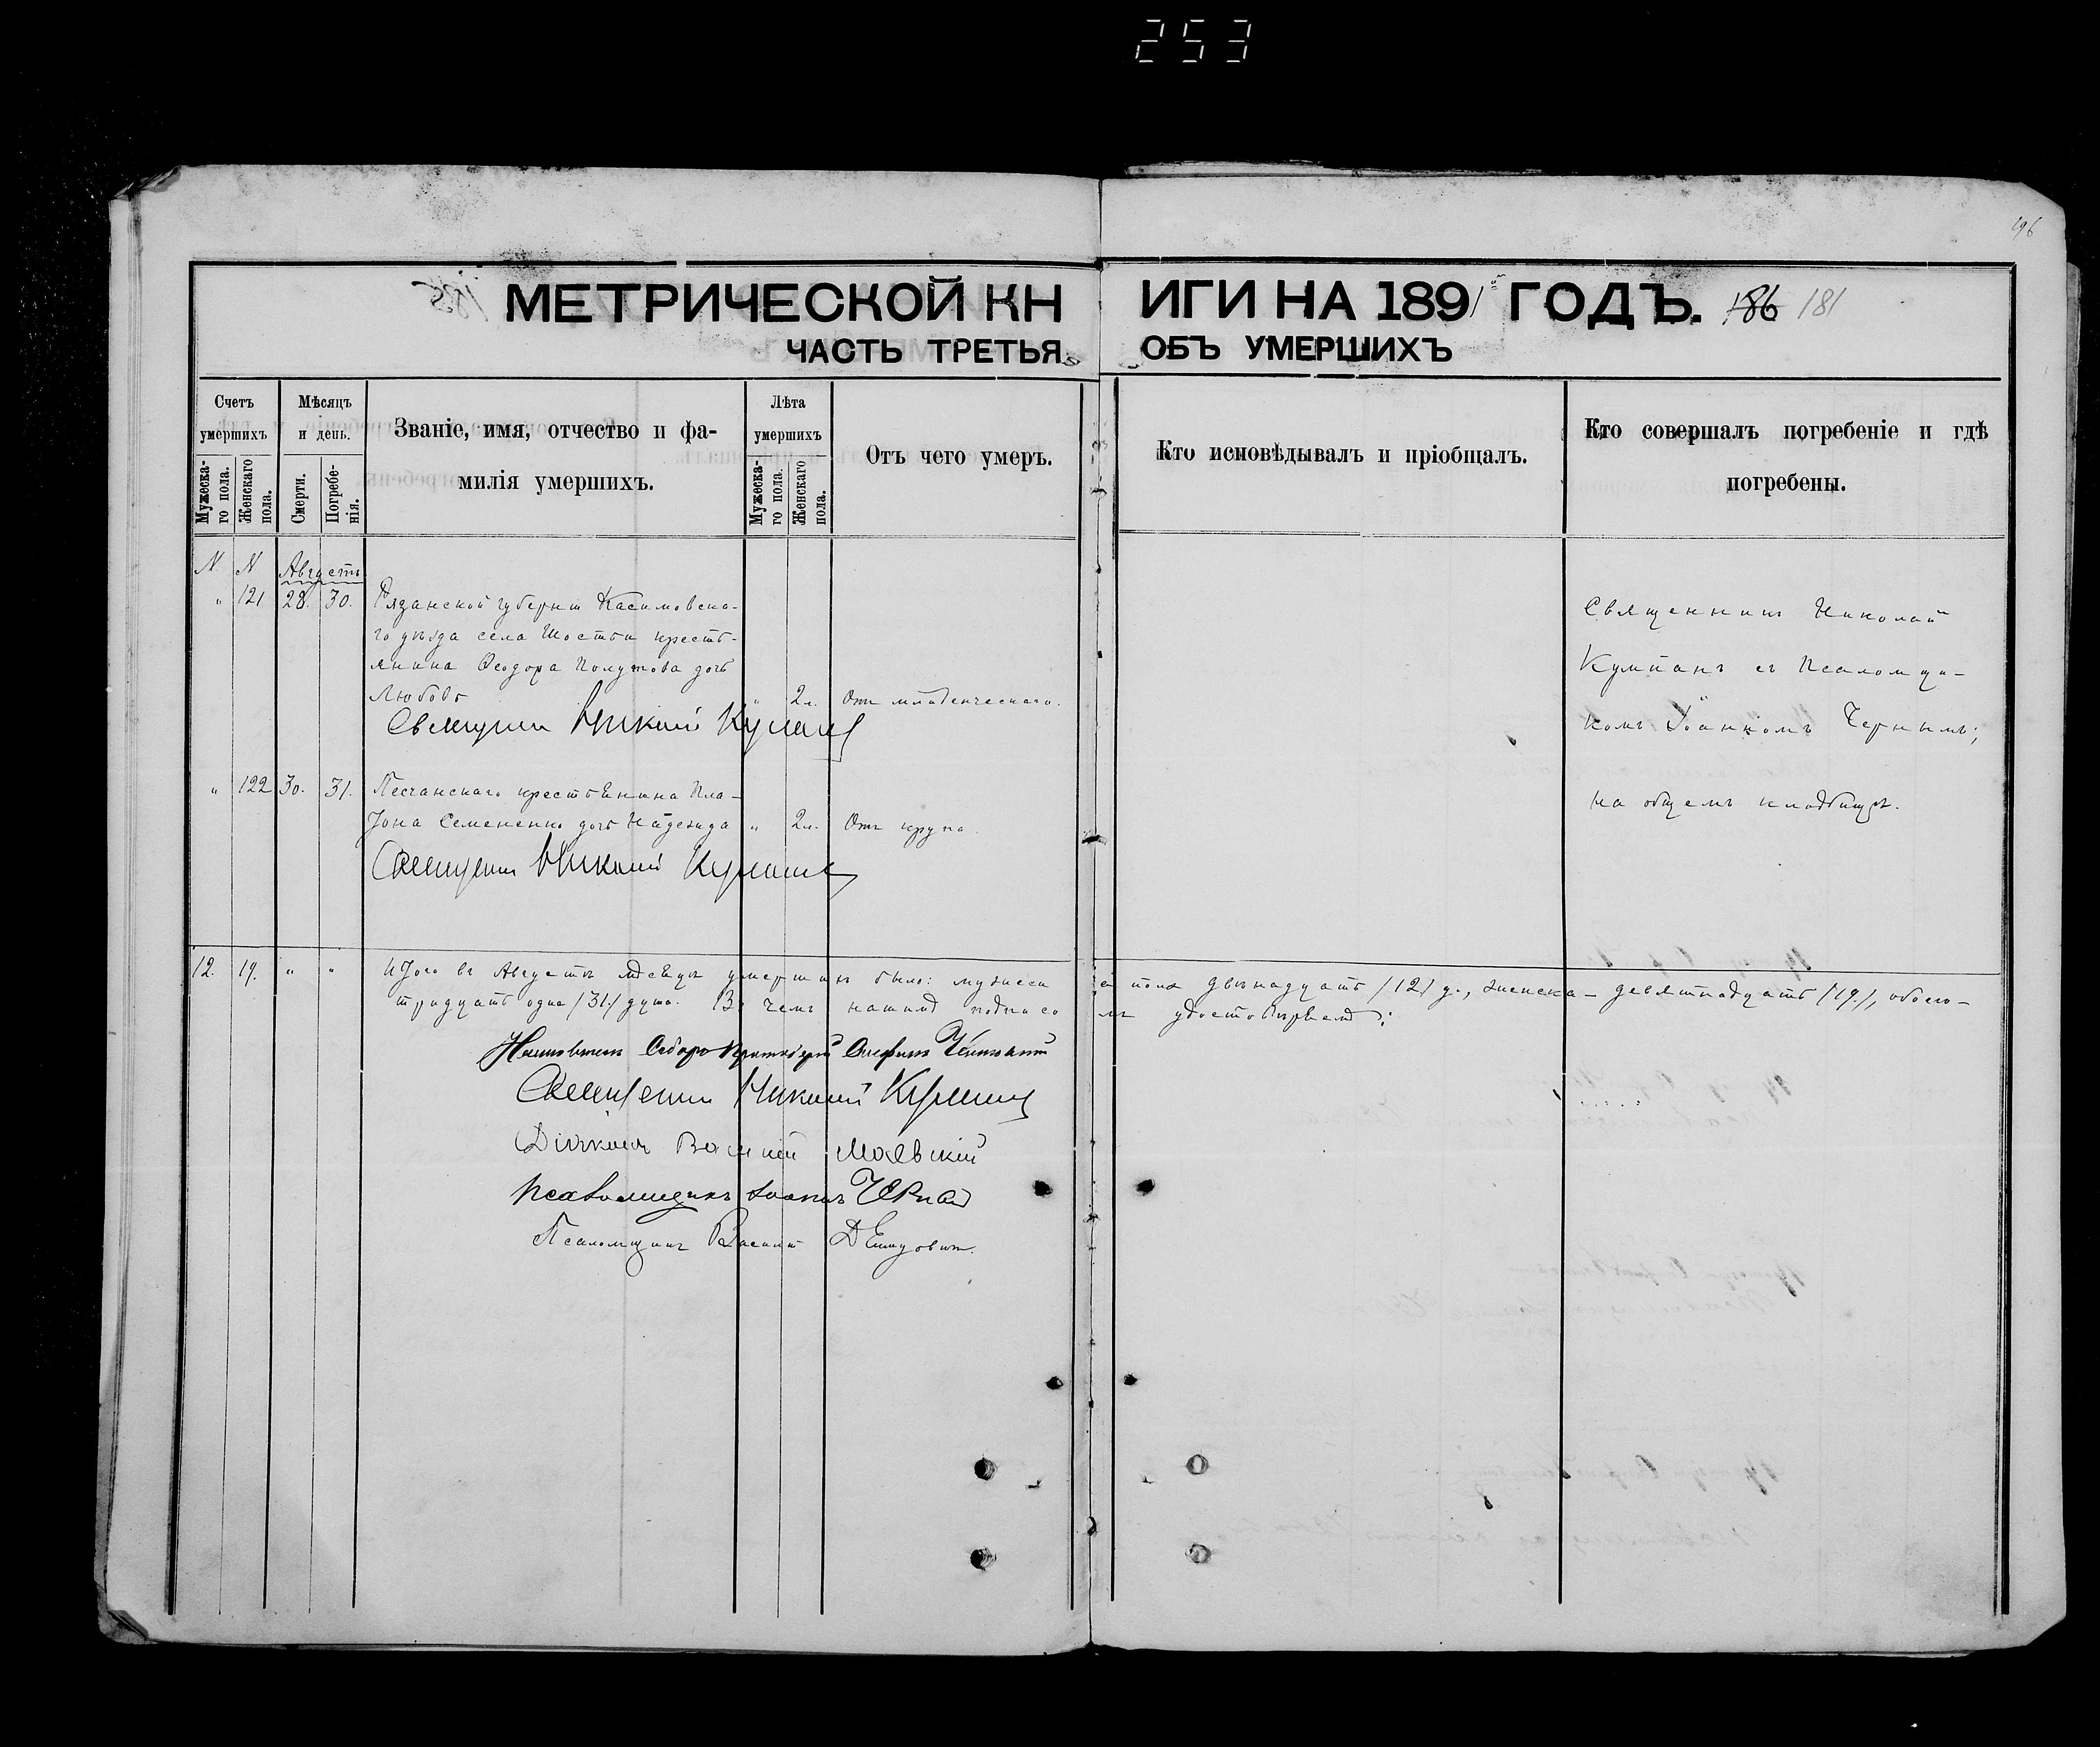 253
196
МЕТРИЧЕСКОЙ КНИГИ НА 1891 ГОДЪ. 186 181
ЧАСТЬ ТРЕТЬЯ ОБЪ УМЕРШИХЪ
Счетъ умершихъ
Мужескаго пола.
Женскаго пола.
Мѣсяцъ и день.
Смерти.
Погребенія.
Званіе, имя, отчество и фа-
милія умершихъ.
Лѣта умершихъ
Мужескаго пола.
Женскаго пола.
Отъ чего умеръ.
Кто исповѣдывалъ и пріобщалъ.
Кто совершалъ погребеніе и гдѣ
погребены.
N N Августъ
" 121 28. 30. Рязанской губерніи Касимовска-
го уѣзда села Шостьи кресть-
янина Ѳеодора Полутова дочь
Любовь " 2л. Отъ младенческаго.
Священникъ Николай Кумпанъ
Священникъ Николай
Кумпанъ съ Псаломщи-
комъ Іоанномъ Чернымъ;
на общемъ кладбищѣ.
" 122 30. 31. Песчанскаго крестьянина Пла-
тона Семененко дочь Надежда " 2л. Отъ крупа.
Священникъ Николай Кумпанъ
12. 19. " " Итого въ Августѣ мѣсяцѣ умершихъ было: мужеска пола двѣнадцать /12/ д., женска – девятнадцать /19/, обоего –
тридцать одна /31/ душа. Въ чемъ нашимъ подписомъ удостовѣряемъ:
Настоятель Соборо Протоіерей
Священникъ Николай Кумпанъ
Діаконъ Василій Маевскій
Псаломщикъ Іоаннъ Черный
Псаломщикъ Василій